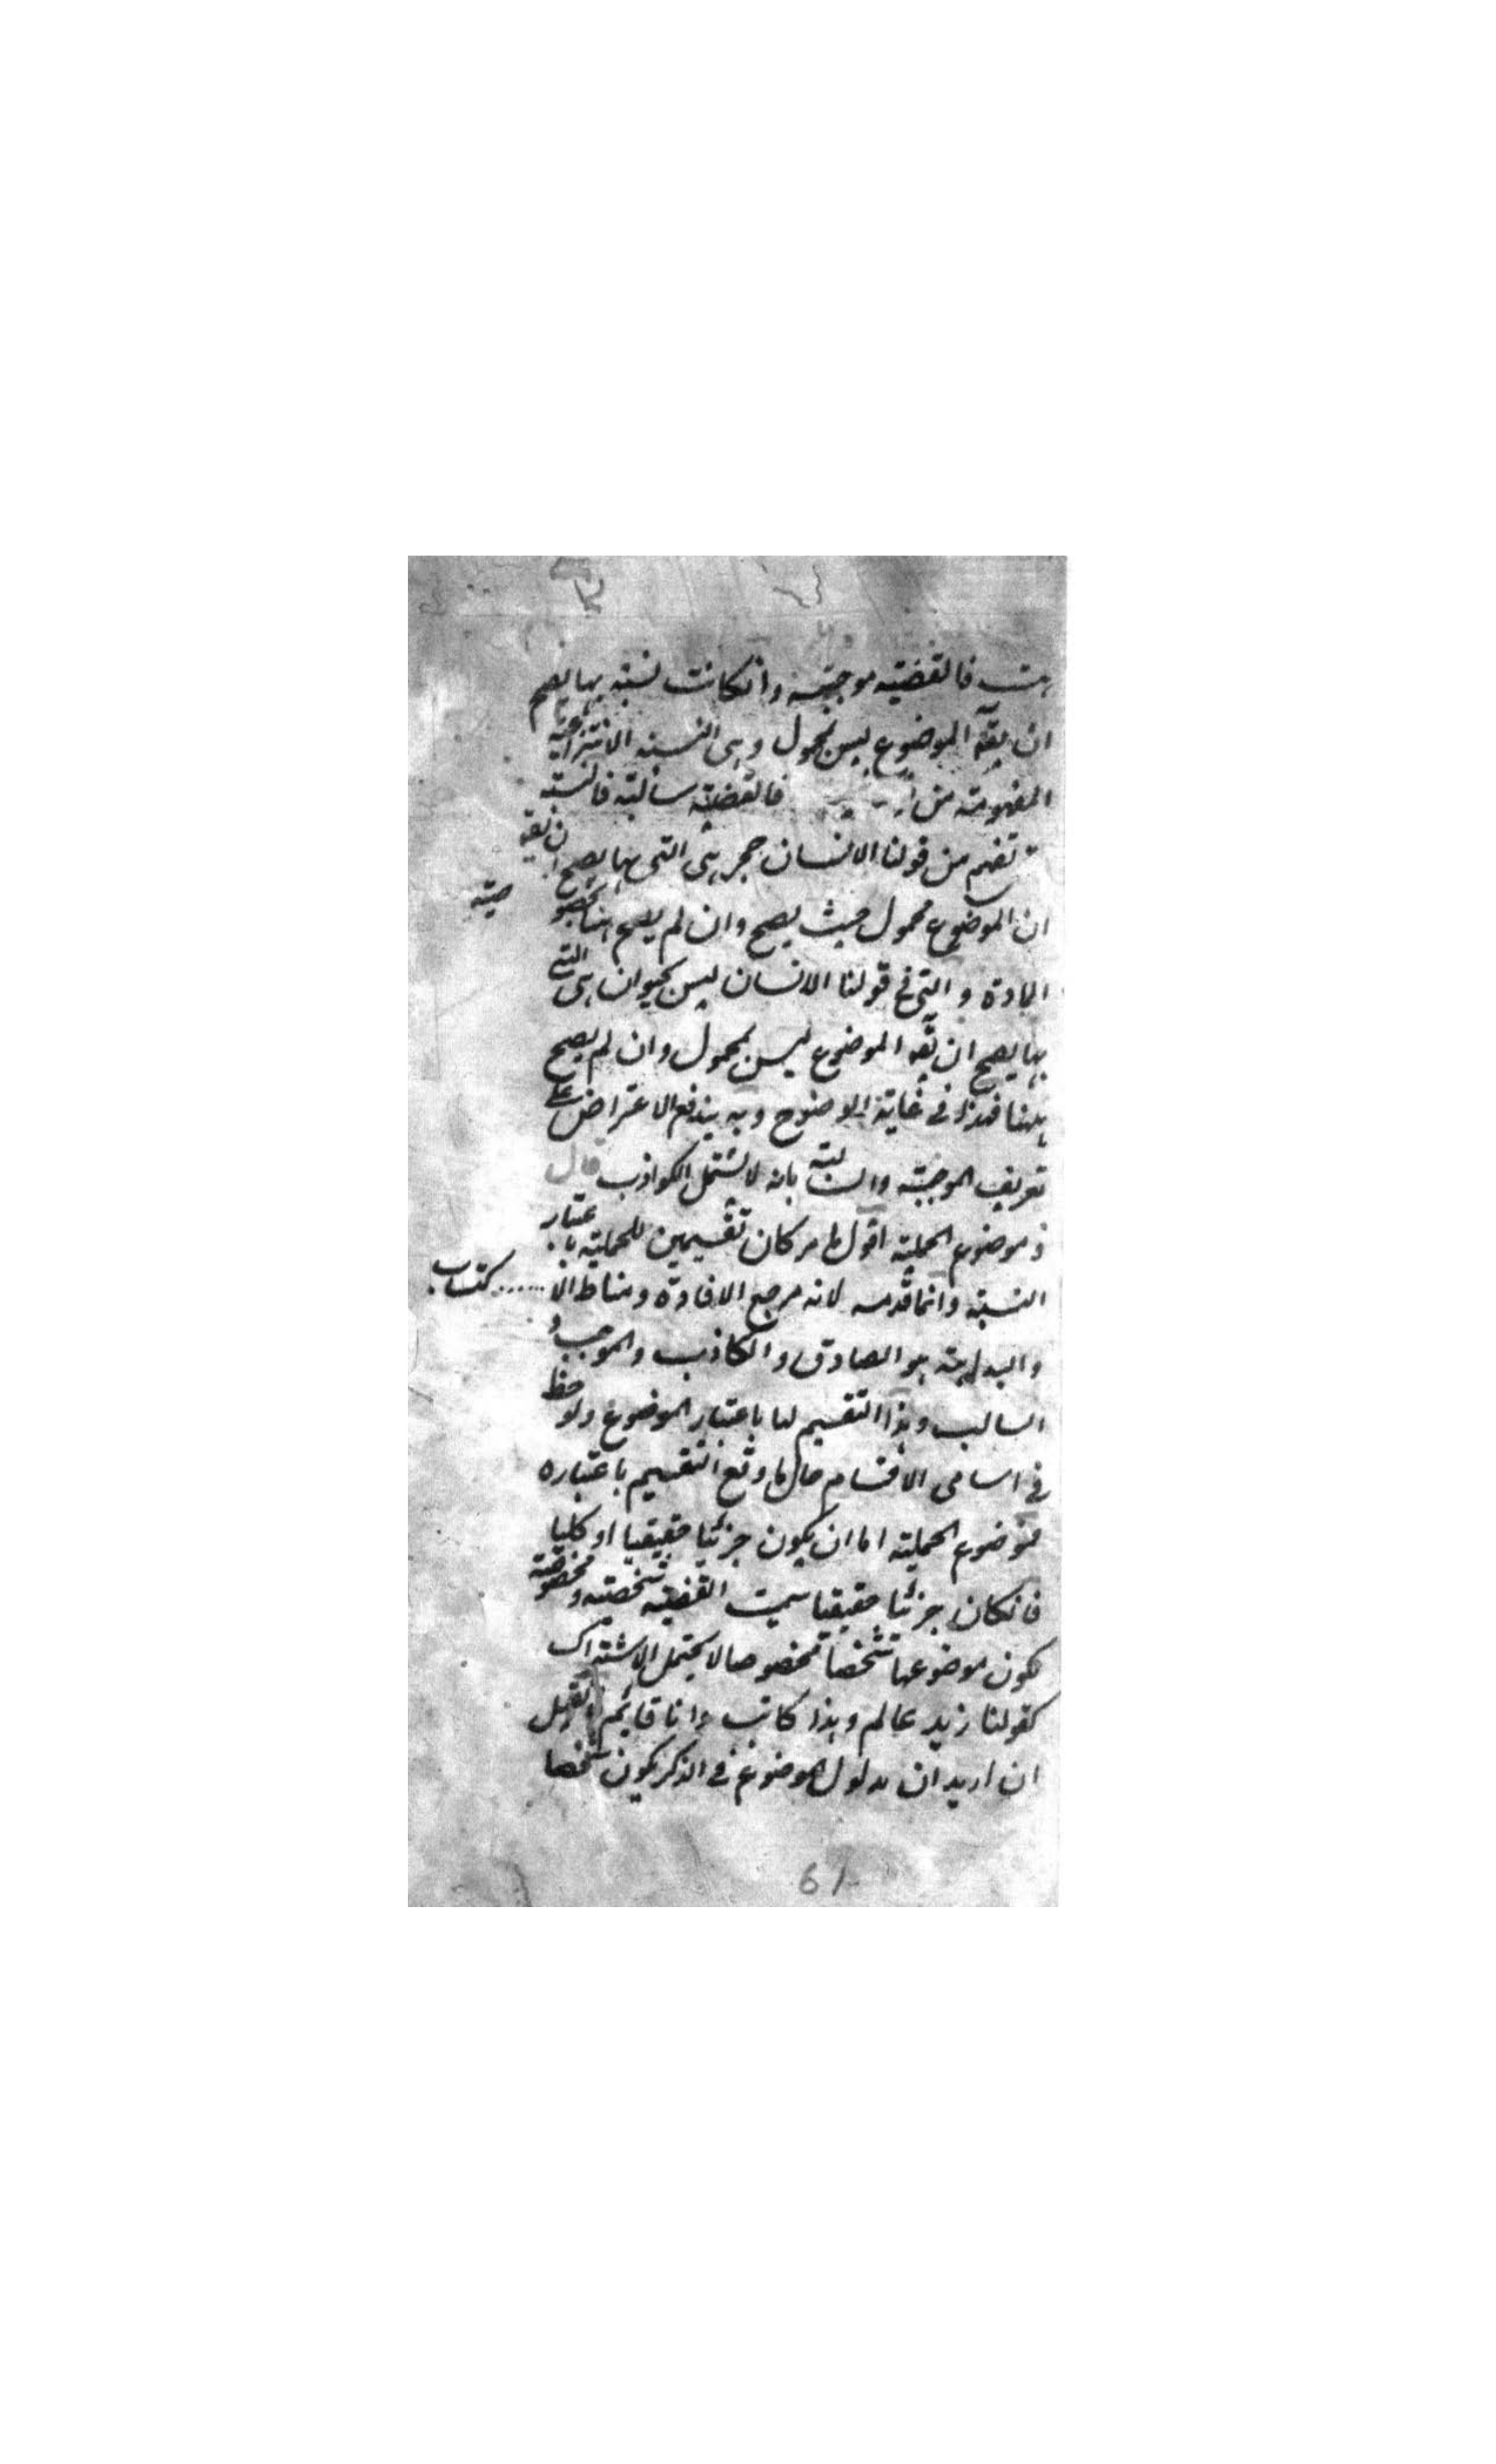 هت فالقضيته موجبته وانكانت نسبته بها يصح
ان يقه الموضوع ليس بمحمول وهى النسبته الانتزاعية
المفهومته من فالقضيته سالبته فالنسبته
تفهم من قولنا الانسان حجر هى التى بها يصح ان يقه
ان الموضوع محمول حيث يصح وان لم يصح هنا بخصوصيته
المادة والتى فى قولنا الانسان ليس بحيوان هى التى
بها يصح ان يقه الموضوع ليس بمحمول وان لم يصح
ههنا فهذا فى غاية الوضوح وبه يندفع الاعتراض على
تعريف الموجبته والسالبته بانه لا يشتمل الكواذب قال
وموضوع الحمليته اقول ما مر كان تقسيمين للحمليته باعتبار
النسبته وانما قدمه لانه مرجع الافادة ومناط الا......كتساب
والبداهته هو الصادق والكاذب والموجب و
السالب وهذا التقسيم لها باعتبار الموضوع ولوحظ
فى اسامى الاقسام حال ما وقع التقسيم باعتباره
فموضوع الحمليته اما ان يكون جزئيا حقيقيا او كليا
فانكان جزئيا حقيقيا سميت القضيته شخصيته ومخصوصته
لكون موضوعها شخصا مخصوصا لا يحتمل الاشتراك
كقولنا زيد عالم وهذا كاتب وانا قائم القيل
ان اريد ان مدلول الموضوع فى الذكر يكون شخصا
61